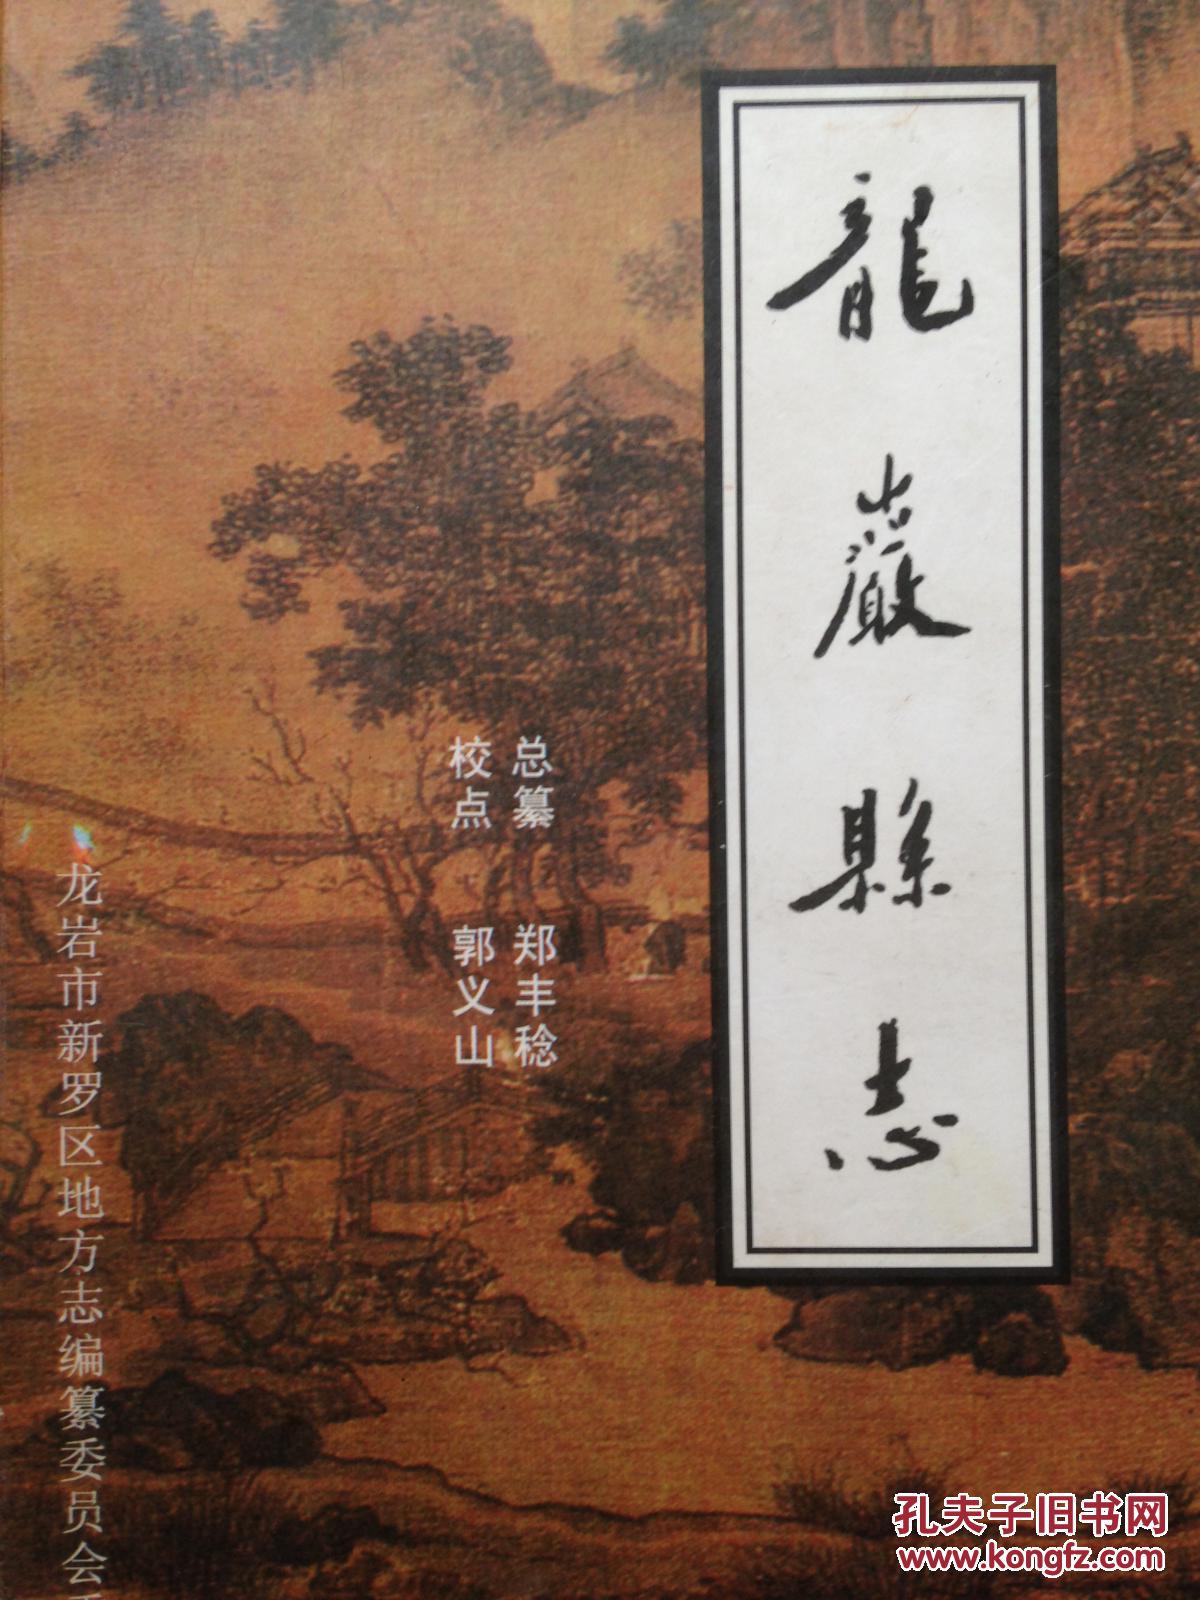 龍巖縣志
总纂 郑丰稔
校点 郭义山
龙岩市新罗区地方志编纂委员会
孔夫子旧书网
www.kongfz.com